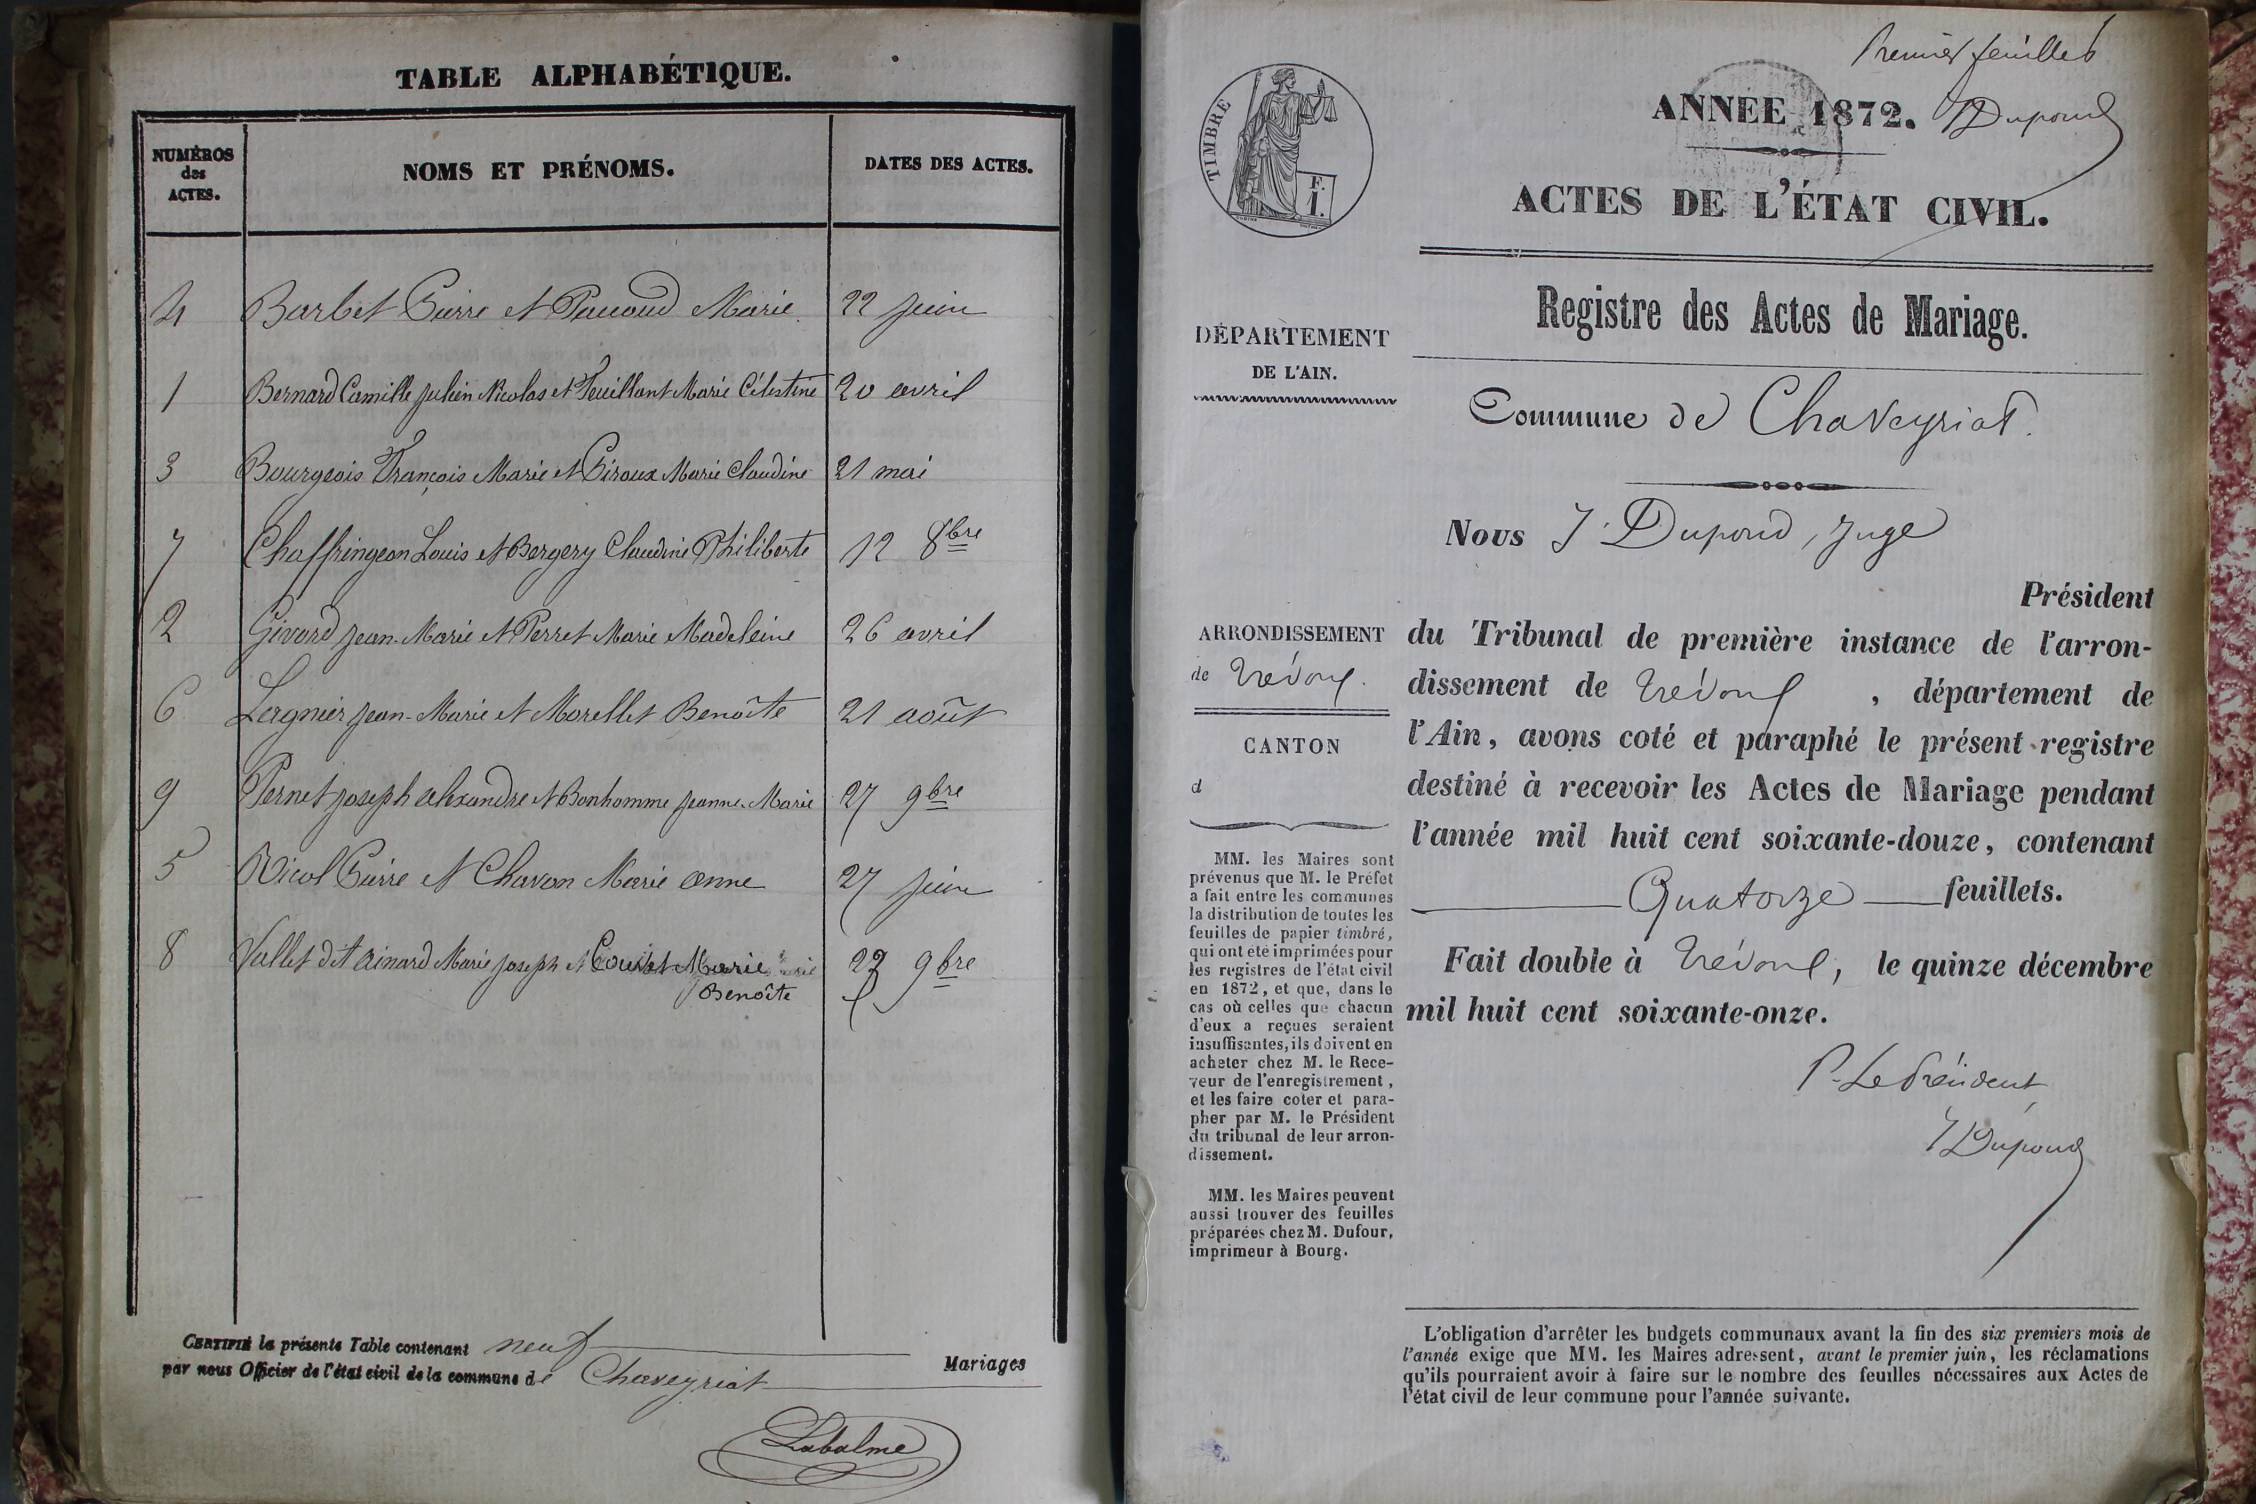 TABLE ALPHABÉTIQUE.
NUMÉROS
des
ACTES.
NOMS ET PRÉNOMS.
DATES DES ACTES.
4 Barbet Pierre et Pauoud Marie 22 juin
1 Bernard Camille Julien Nicolas et Feuillant Marie Célestine 20 avril
3 Bourgeois François Marie et Giroux Marie Claudine 21 mai
7 Chaffringeon Louis et Bergery Claudine Philiberte 12 8bre
2 Givord Jean-Marie et Perret Marie Madeleine 26 avril
6 Lagnier Jean-Marie et Morellet Benoîte 21 août
9 Pernet Joseph alexandre et Bonhomme Jeanne-Marie 27 9bre
5 Vicol Pierre et Chavon Marie anne 27 juin
8 Vallet dit Ainard Marie Joseph et Marie 9bre
Benoîte
CERTIFIÉ la présente Table contenant neuf
Mariages
par nous Officier de l'état civil de la commune de Chaveyriat
Labalme
Premier feuillet
TIMBRE
F.
1.
ANNÉE 1872. JDupond
ACTES DE L'ÉTAT CIVIL.
Registre des Actes de Mariage.
DÉPARTEMENT
DE L'AIN.
Commune de Chaveyriat.
Nous J. Dupond, Juge
Président
ARRONDISSEMENT
de Trévoux.
CANTON
d
du Tribunal de première instance de l'arron-
dissement de Trévoux, département de
l'Ain, avons coté et paraphé le présent registre
destiné à recevoir les Actes de Mariage pendant
l'année mil huit cent soixante-douze, contenant
Quatorze feuillets.
Fait double à Trévoux, le quinze décembre
mil huit cent soixante-onze.
P. Le Président
JDupond
MM. les Maires sont
prévenus que M. le Préfet
a fait entre les communes
la distribution de toutes les
feuilles de papier timbré,
qui ont été imprimées pour
les registres de l'état civil
en 1872, et que, dans le
cas où celles que chacun
d'eux a reçues seraient
insuffisantes, ils doivent en
acheter chez M. le Rece-
veur de l'enregistrement,
et les faire coter et para-
pher par M. le Président
du tribunal de leur arron-
dissement.
MM. les Maires peuvent
aussi trouver des feuilles
préparées chez M. Dufour,
imprimeur à Bourg.
L'obligation d'arrêter les budgets communaux avant la fin des six premiers mois de
l'année exige que MM. les Maires adressent, avant le premier juin, les réclamations
qu'ils pourraient avoir à faire sur le nombre des feuilles nécessaires aux Actes de
l'état civil de leur commune pour l'année suivante.